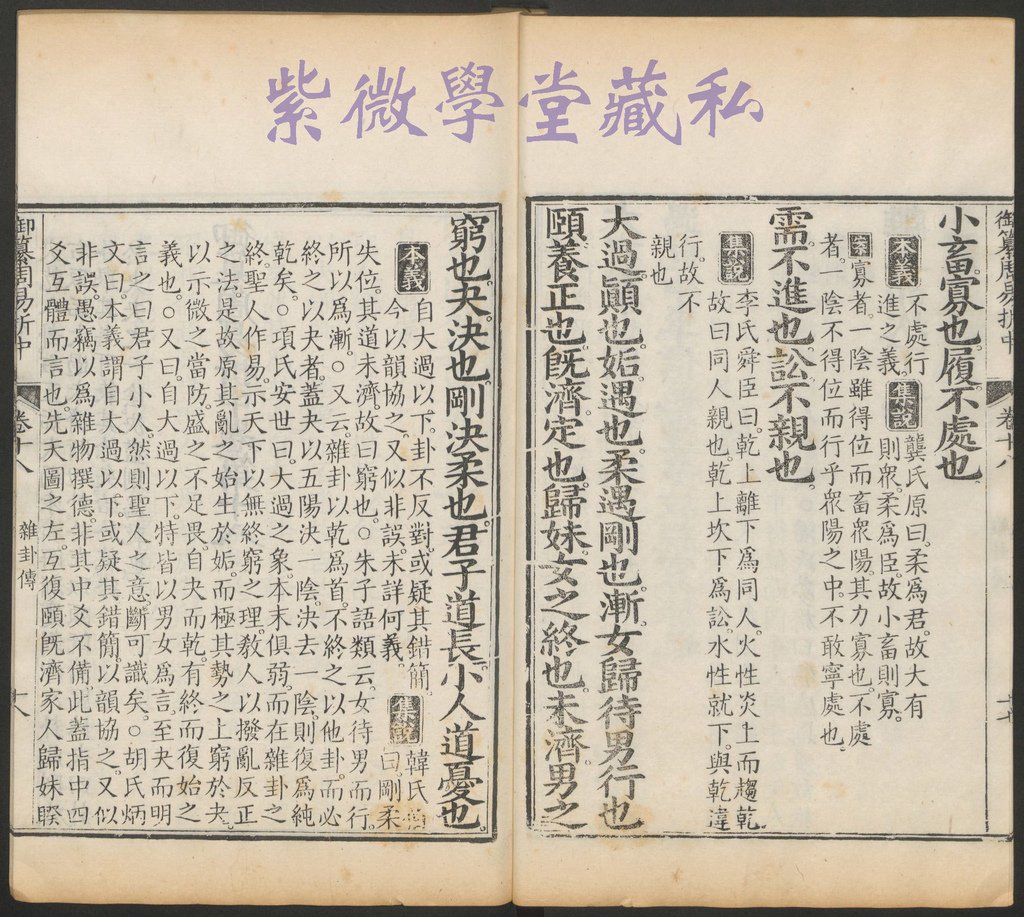 紫微學堂藏私
御纂周易折中 卷十八 十七
小畜寡也履不處也
本義 不處行
進之義
集說 龔氏原曰柔爲君故大有
則衆柔爲臣故小畜則寡
案 寡者一陰雖得位而畜衆陽其力寡也不處
者一陰不得位而行乎衆陽之中不敢寧處也
需不進也訟不親也
集說 李氏舜臣曰乾上離下爲同人火性炎上而趨乾
故曰同人親也乾上坎下爲訟水性就下與乾違
行故不
親也
大過顛也姤遇也柔遇剛也漸女歸待男行也
頤養正也旣濟定也歸妹女之終也未濟男之
窮也夬決也剛決柔也君子道長小人道憂也
本義 自大過以下卦不反對或疑其錯簡
今以韻協之又似非誤未詳何義
集說 韓氏伯
曰剛柔
失位其道未濟故曰窮也○朱子語類云女待男而行
所以爲漸○又云雜卦以乾爲首不終之以他卦而必
終之以夬者蓋夬以五陽決一陰決去一陰則復爲純
乾矣○項氏安世曰大過之象本末俱弱而在雜卦之
終聖人作易示天下以無終窮之理敎人以撥亂反正
之法是故原其亂之始生於姤而極其勢之上窮於夬
以示微之當防盛之不足畏自夬而乾有終而復始之
義也○又曰自大過以下特皆以男女爲言至夬而明
言之曰君子小人然則聖人之意斷可識矣○胡氏炳
文曰本義謂自大過以下或疑其錯簡以韻協之又似
非誤愚竊以爲雜物撰德非其中爻不備此蓋指中四
爻互體而言也先天圖之左互復頤旣濟家人歸妹睽
御纂周易折中 卷十八 雜卦傳 十八